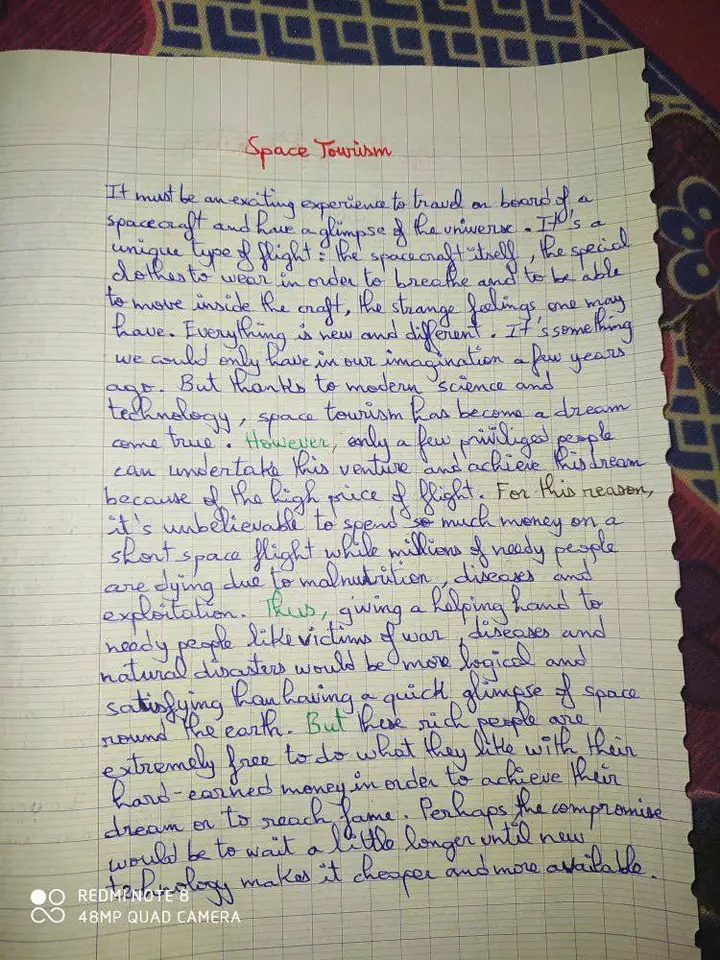 Space Tourism
It must be an exciting experience to travel on board of a
spacecraft and have a glimpse of the universe. It's a
unique type of flight : the spacecraft itself, the special
clothes to wear in order to breathe and to be able
to move inside the craft, the strange feelings one may
have. Everything is new and different. It's something
we could only have in our imagination a few years
ago. But thanks to modern science and
technology, space tourism has become a dream
come true. However, only a few priviliged people
can undertake this venture and achieve this dream
because of the high price of flight. For this reason,
it's unbelievable to spend so much money on a
short space flight while millions of needy people
are dying due to malnutrition, diseases and
exploitation. Thus, giving a helping hand to
needy people like victims of war, diseases and
natural disasters would be more logical and
satisfying than having a quick glimpse of space
round the earth. But these rich people are
extremely free to do what they like with their
hard-earned money in order to achieve their
dream or to reach fame. Perhaps the compromise
would be to wait a little longer until new
technology makes it cheaper and more available.
REDMI NOTE 8
48MP QUAD CAMERA